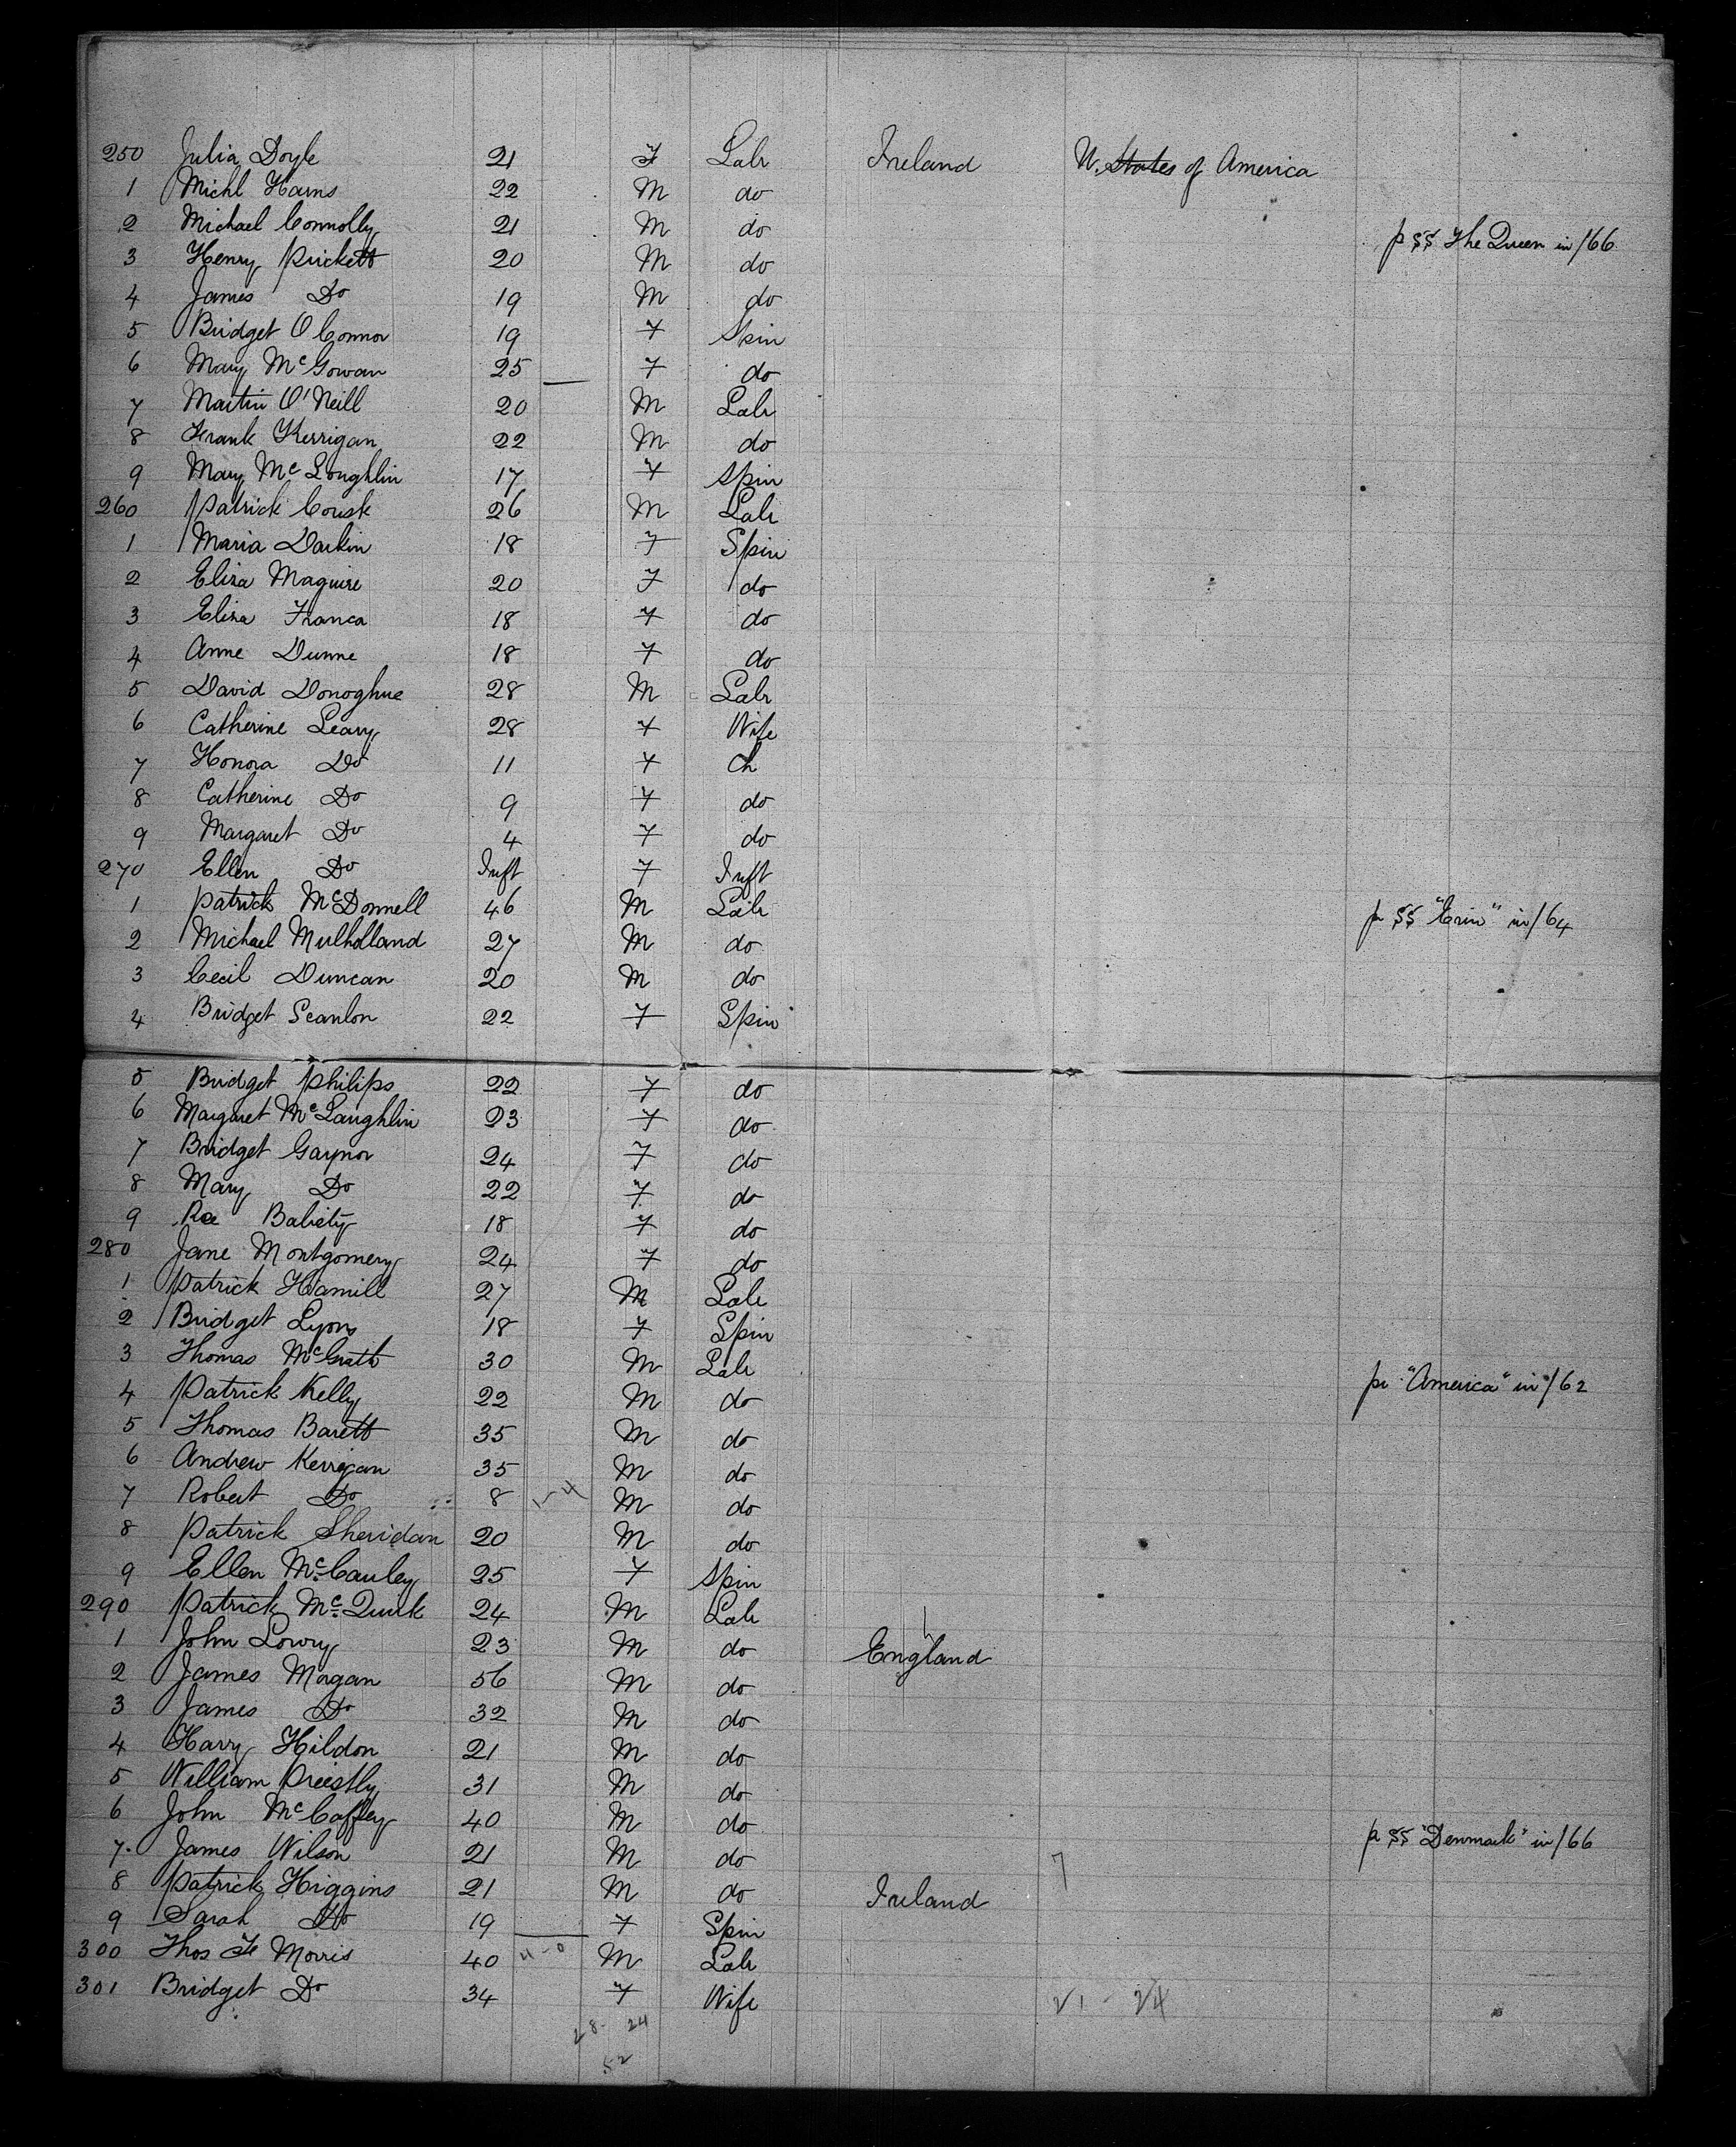 250 Julia Doyle 21 F Labr Ireland U. States of America
1 Michl Harns 22 M do
2 Michael Connolly 21 M do p SS The Queen in /66
3 Henry Prickett 20 M do
4 James Do 19 M do
5 Bridget O Connor 19 F Spin
6 Mary McGowan 25 F do
7 Martin O'Neill 20 M Labr
8 Frank Kerrigan 22 M do
9 Mary McLoughlin 17 F Spin
260 Patrick Cousk 26 M Labr
1 Maria Darkin 18 F Spin
2 Eliza Maguire 20 F do
3 Eliza Franca 18 F do
4 Anne Dunne 18 F do
5 David Donoghue 28 M Labr
6 Catherine Leary 28 F Wife
7 Honora Do 11 F Ch
8 Catherine Do 9 F do
9 Margaret Do 4 F do
270 Ellen Do Inft F Inft
1 Patrick McDonnell 46 M Labr p SS "Erin" in /64
2 Michael Mulholland 27 M do
3 Cecil Duncan 20 M do
4 Bridget Scanlon 22 F Spin
5 Bridget Philips 22 F do
6 Margaret McLaughlin 23 F do
7 Bridget Gaynor 24 F do
8 Mary Do 22 F do
9 18 F do
280 Jane Montgomery 24 F do
1 Patrick Hamill 27 M Labr
2 Bridget Lyons 18 F Spin
3 Thomas McGrath 30 M Labr
4 Patrick Kelly 22 M do pr "America" in /62
5 Thomas Barett 35 M do
6 Andrew Kerrigan 35 M do
7 Robert Do 8 M do
8 Patrick Sheridan 20 M do
9 Ellen McCauley 25 F Spin
290 Patrick McQuirk 24 M Labr
1 John Lowry 23 M do England
2 James Morgan 56 M do
3 James Do 32 M do
4 Harry Hildon 21 M do
5 William Priestly 31 M do
6 John McCaffey 40 M do p SS "Denmark" in /66
7 James Wilson 21 M do
8 Patrick Higgins 21 M do Ireland
9 Sarah Do 19 F Spin
300 Thos F Morris 40 M Labr
301 Bridget Do 34 F Wife 21 - 24
28 - 24
52